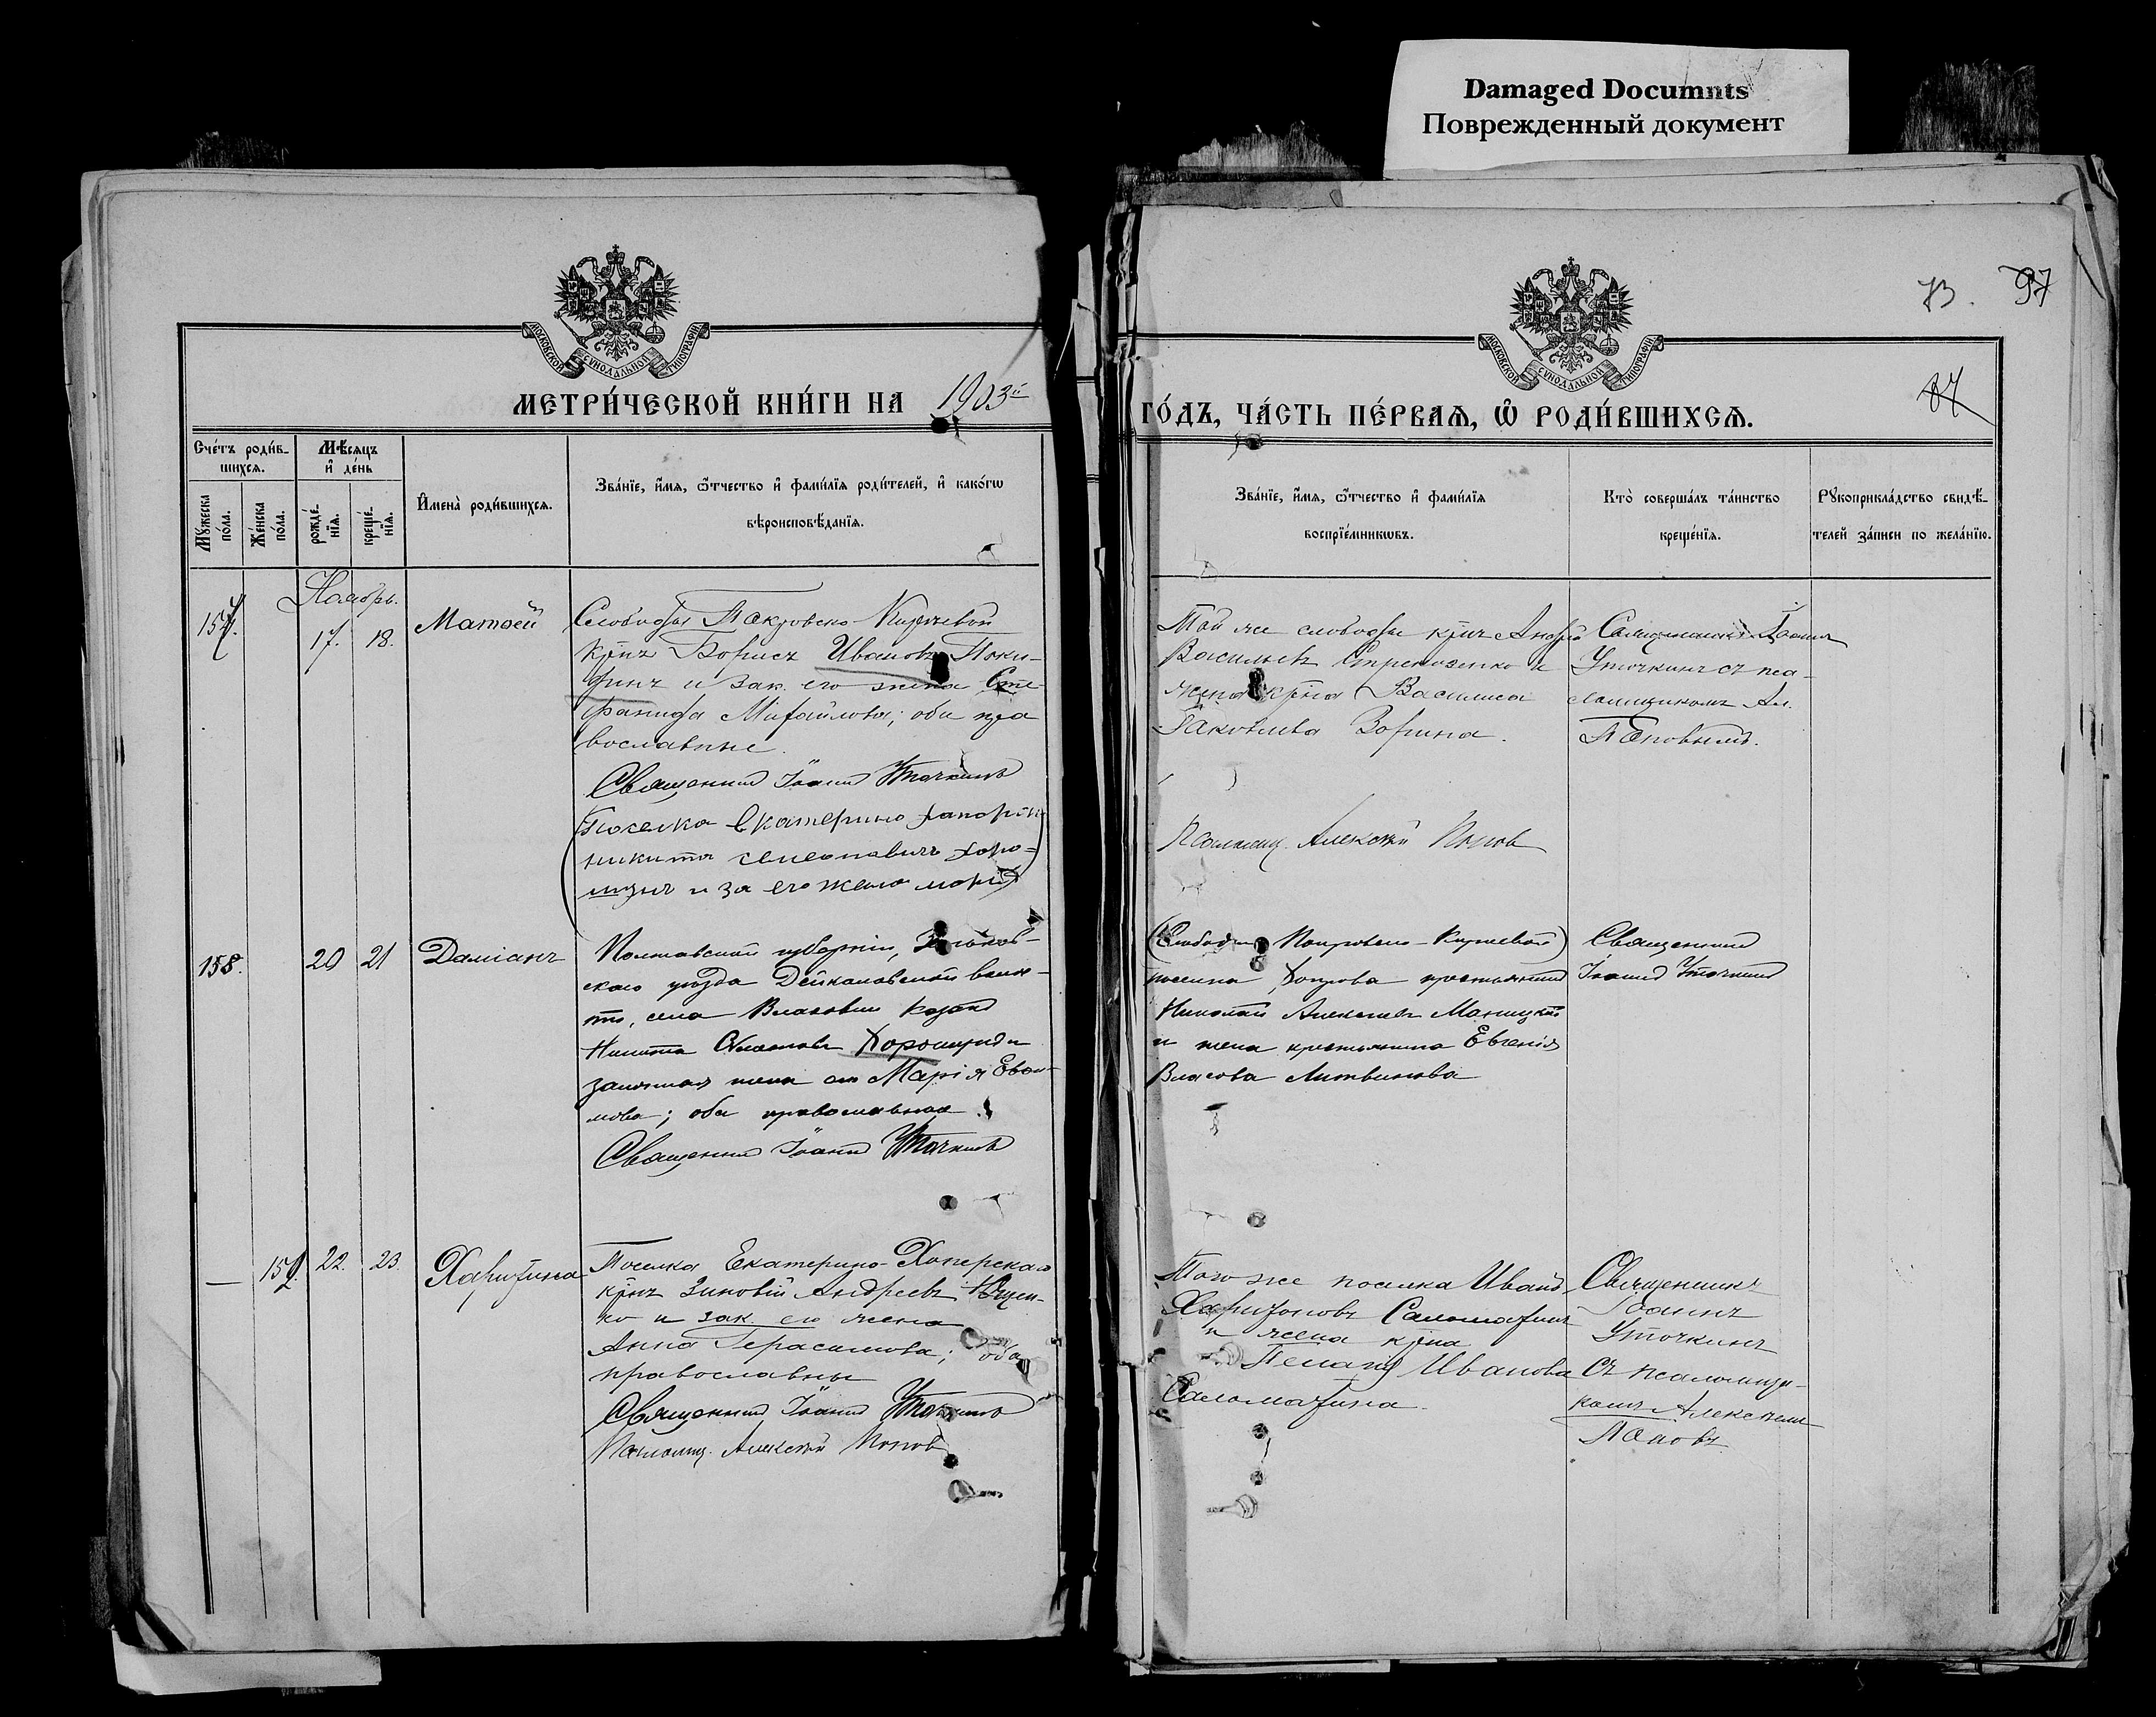 Damaged Documnts
Поврежденный документ
73. 97
87
МОСКОВСКОЙ СѴНОДАЛЬНОЙ ТИПОГРАФІИ
МОСКОВСКОЙ СѴНОДАЛЬНОЙ ТИПОГРАФІИ
МЕТРИ́ЧЕСКОЙ КНИ́ГИ НА 1903й
ГО́ДЪ, ЧА́СТЬ ПЕ́РВАѦ, Ѡ҆ РОДИ́ВШИХСѦ.
Сче́тъ роди́в-
шихсѧ.
Мꙋ́жеска по́ла.
Же́нска по́ла.
Мѣ́сѧцъ
и҆ де́нь
рожде́-
нїѧ.
креще́-
нїѧ.
И҆мена̀ роди́вшихсѧ.
Зва́нїе, и҆́мѧ, ѻ҆́тчество и҆ фами́лїѧ роди́телей, и҆ како́гѡ
вѣроисповѣ́данїѧ.
Зва́нїе, и҆́мѧ, ѻ҆́тчество и҆ фами́лїѧ
воспрїе́мникѡвъ.
Кто̀ соверша́лъ та́инство
креще́нїѧ.
Рꙋкоприкла́дство свидѣ́-
телей за́писи по жела́нїю.
Ноябрь.
157. 17. 18. Матѳей
Слободы Покровско-Киреевой
крнъ Борисъ Ивановъ Поки-
динъ и зак. его жена Сте-
фанида Михайлова; оба пра
вославные.
Священникъ Іоаннъ Уточкинъ
(Поселка Екатерино Хапорск
никита семеонавичъ хоро-
шунъ и за его жена марія)
Той же слободы крнъ Андрей
Васильевъ и
жена крна Василиса
Іаковлева Зорина.
Псаломщ. Алексѣй Поповъ
Священникъ Іоаннъ
Уточкинъ съ пса-
ломщикомъ Ал.
Поповымъ.
158. 20 21 Даміанъ
Полтавской губерніи, Зеньков-
скаго уѣзда Дейкаловской волос-
ти, села Власовки казакъ
Никита Сѵмеоновъ Хорошунъ и
законная жена его Марія Евѳи-
мова; оба православные.
Священникъ Іоаннъ Уточкинъ
(Слободы Покровско-Киреевой)
поселка Хопрова крестьянинъ
Николай Алексѣевъ
и жена крестьянина Евгенія
Власова Литвинова
Священникъ
Іоаннъ Уточкинъ
— 159. 22. 23. Харитина
Поселка Екатерино-Хоперскаго
крнъ Зиновій Андреевъ Ющен-
ко и зак. его жена
Анна Герасимова; оба
православны
Священникъ Іоаннъ Уточкинъ
Псаломщ. Алексѣй Поповъ
Того же поселка Иванъ
Харитоновъ Саломатинъ
и жена крна
Пелагія Иванова
Саломатина.
Священникъ
Іоаннъ
Уточкинъ
съ псаломщи-
комъ Алексѣем
Поповъ